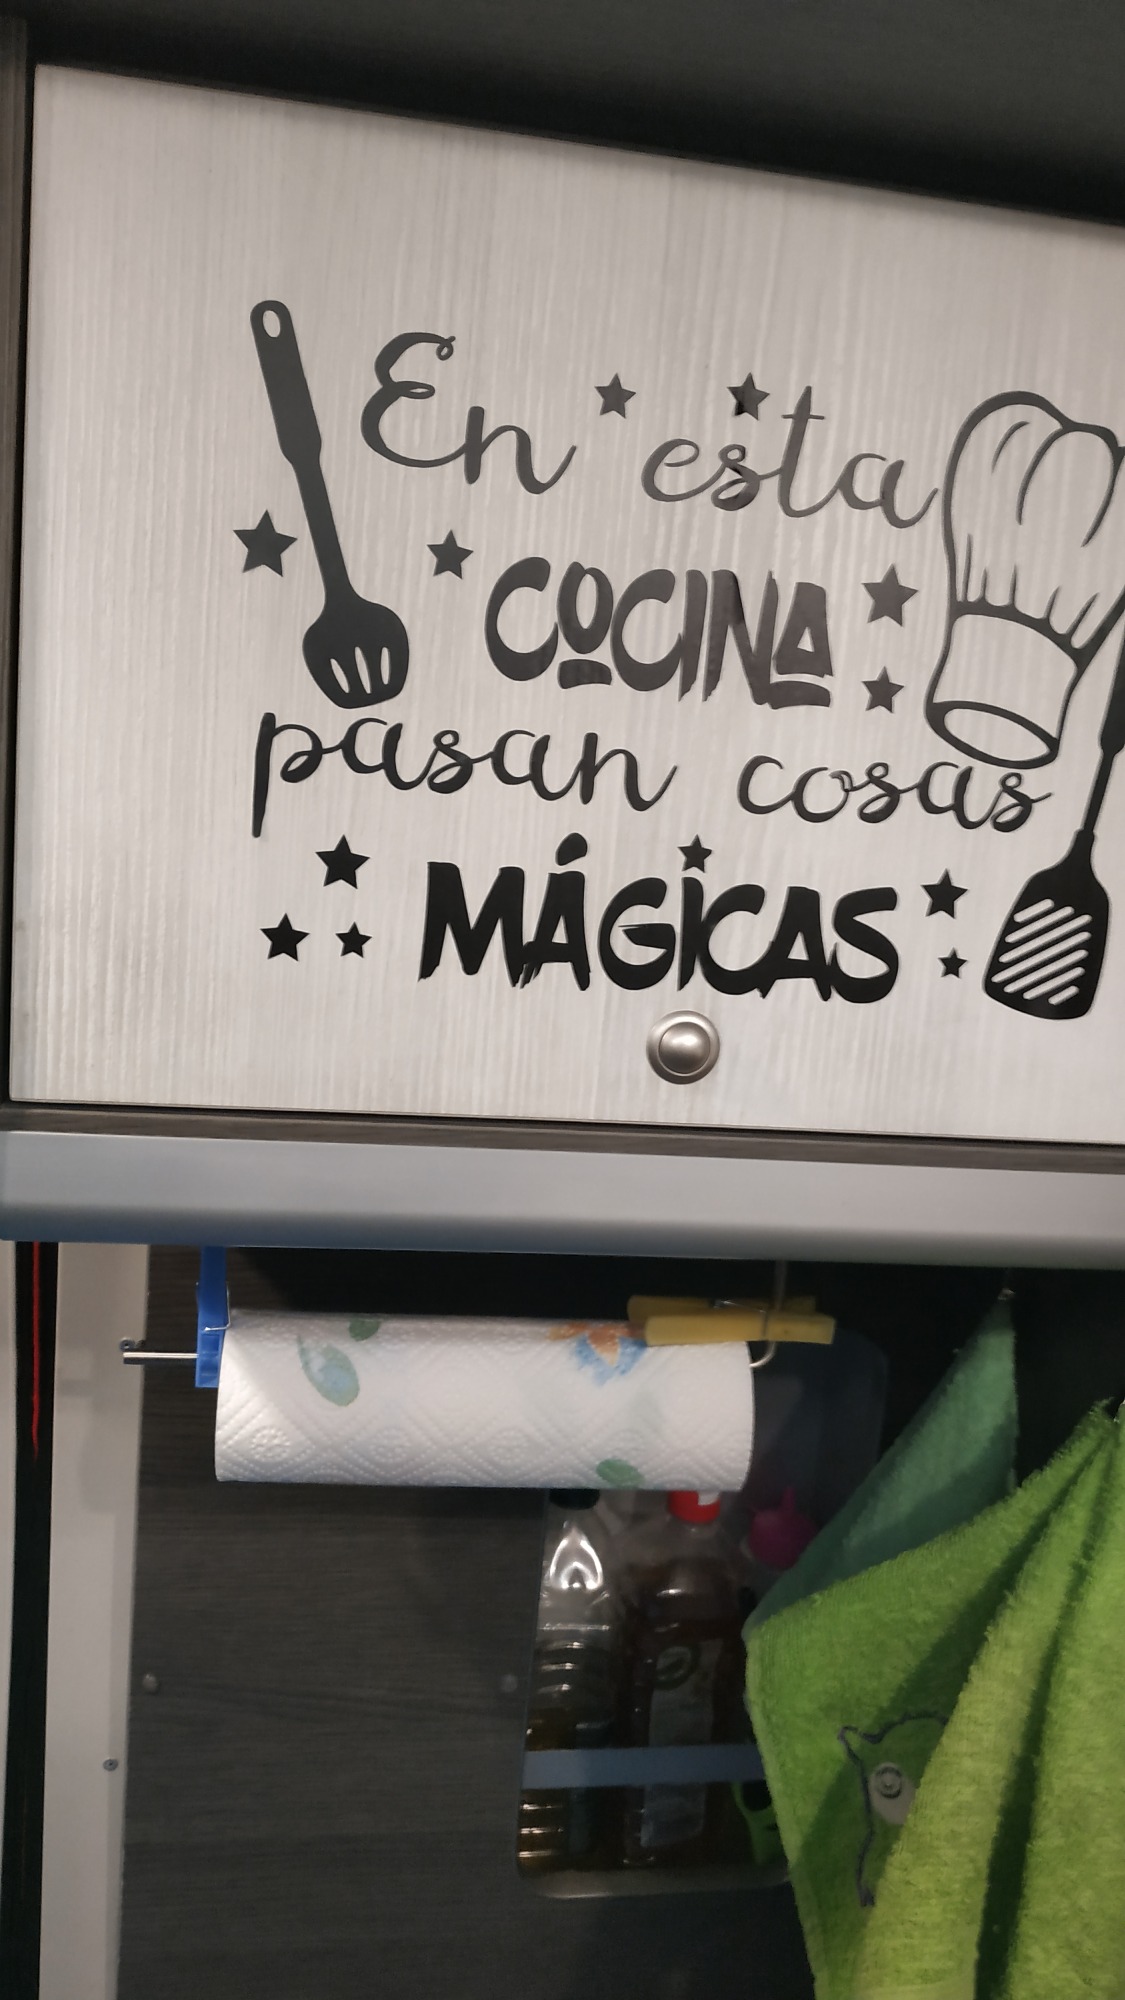 En esta
COCINA
pasan cosas
MÁGICAS